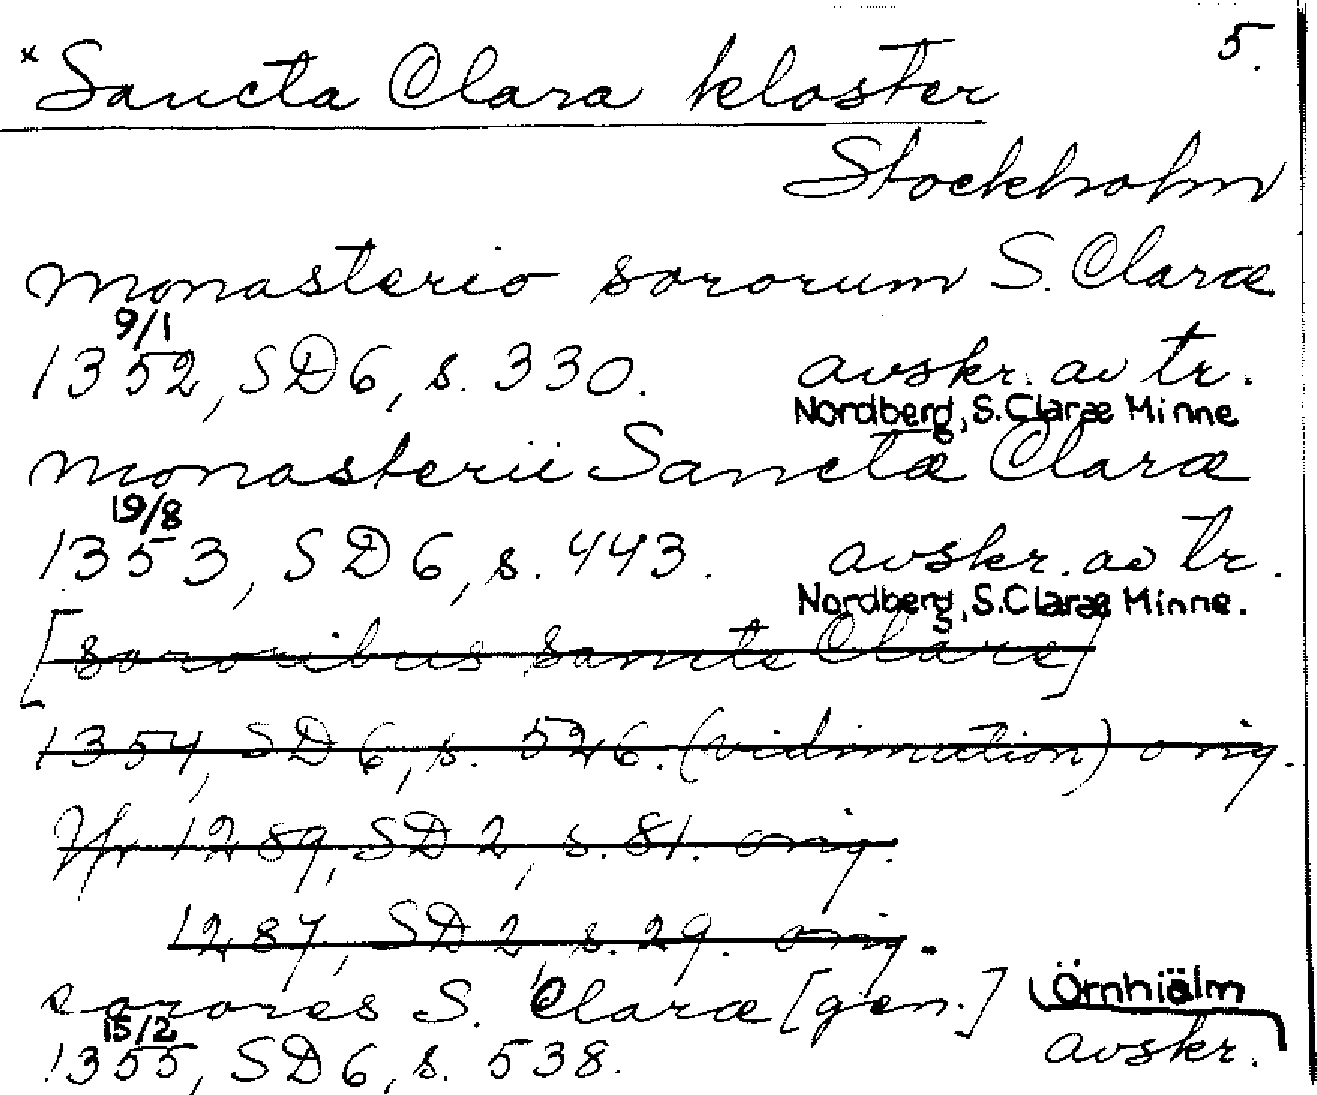 5.
*Sancta Clara kloster
Stockholm
monasterio sororum S. Claræ
9/1
1352, SD 6, s. 330. avskr. av tr.
Nordberg, S. Claræ Minne
monasterii Sanctæ Claræ
19/8
1353, SD 6, s. 443. avskr. av tr.
Nordberg, S. Claræ Minne.
[sororibus sancte Clare]
1354, SD 6, s. 526. (vidimation) orig.
Jfr 1289, SD 2, s. 81. orig.
1287, SD 2, s. 29. orig.
sorores S. Claræ [gen.] Örnhiälm
15/2
1355, SD 6, s. 538. avskr.